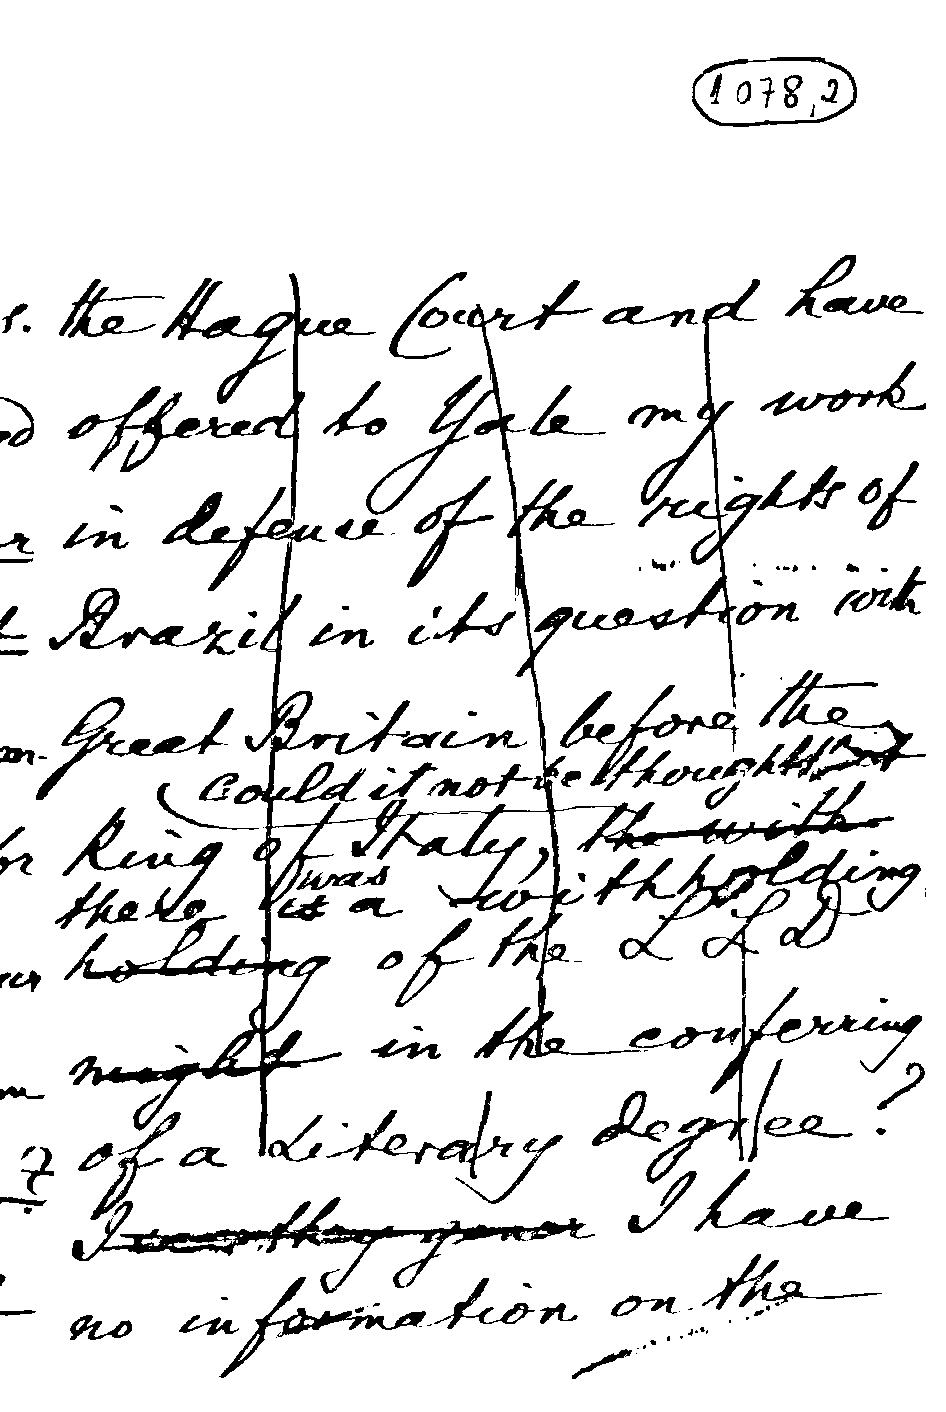 1078,2
s. the Hague Court and have
ed offered to Yale my work
er in defense of the rights of
t Brazil in its question with
on- Great Britain before the
could it not be thought that
or King of Italy, the with-
there was is a withholding
our holding of the L L D
might in the conferring
of a Literary degree?
7
I I have
no information on the